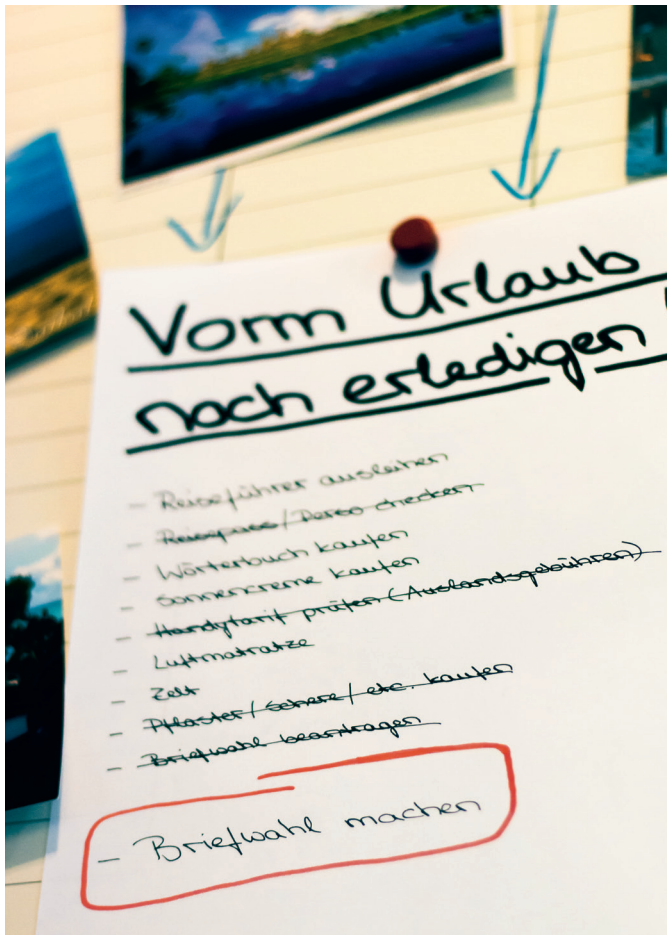 Vorm Urlaub
noch erledigen
- Reiseführer ausleihen
- Reisepass/Perso checken
- Wörterbuch kaufen
- Sonnencreme kaufen
- Handytarif prüfen (Auslandsgebühren)
- Luftmatratze
- Zelt
- Pflaster/Schere/etc. kaufen
- Briefwahl beantragen
- Briefwahl machen